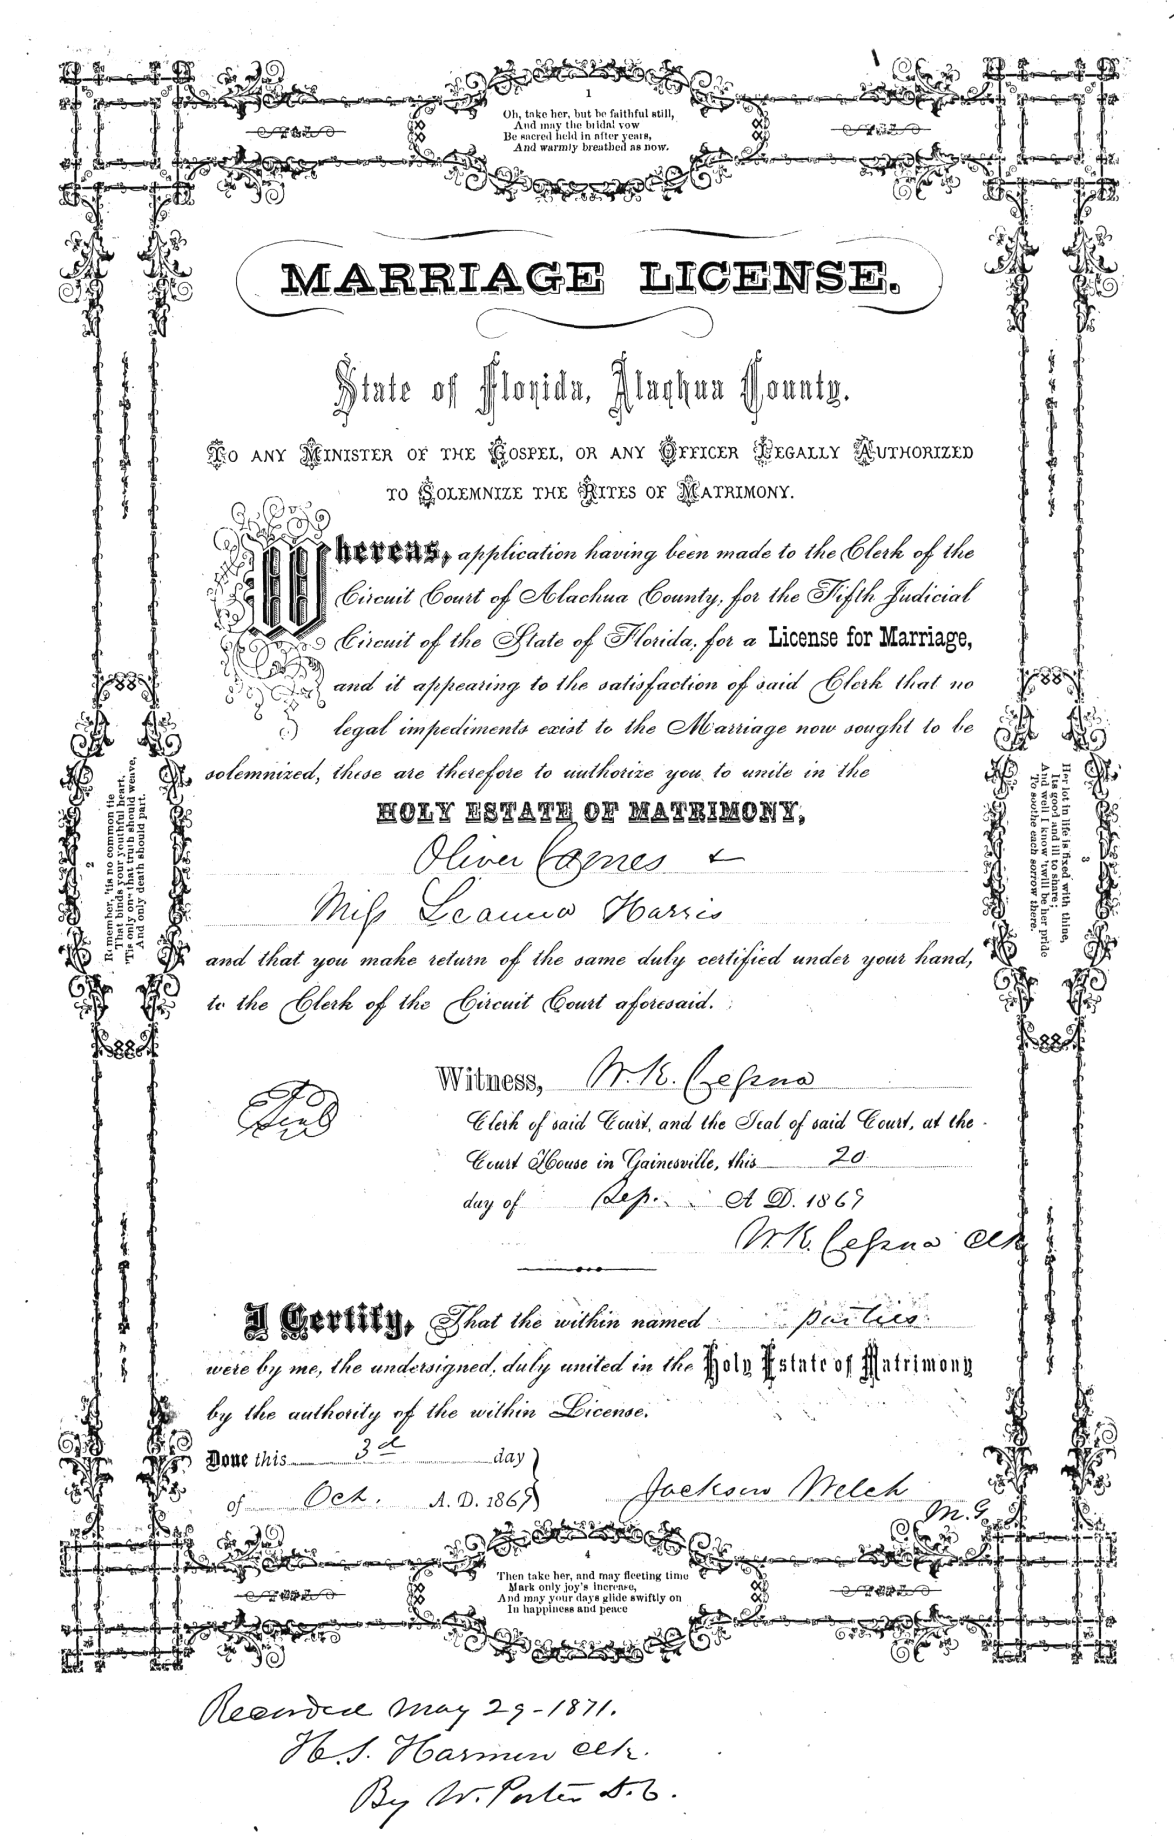 1
Oh, take her, but be faithful still,
And may the bridal vow
Be sacred held in after years,
And warmly breathed as now.
MARRIAGE LICENSE.
State of Florida, Alachua County.
TO ANY MINISTER OF THE GOSPEL, OR ANY OFFICER LEGALLY AUTHORIZED
TO SOLEMNIZE THE RITES OF MATRIMONY.
Whereas, application having been made to the Clerk of the
Circuit Court of Alachua County, for the Fifth Judicial
Circuit of the State of Florida, for a License for Marriage,
and it appearing to the satisfaction of said Clerk that no
legal impediments exist to the Marriage now sought to be
solemnized, these are therefore to authorize you to unite in the
HOLY ESTATE OF MATRIMONY,
Oliver &
Miss Leanna Harris
and that you make return of the same duly certified under your hand,
to the Clerk of the Circuit Court aforesaid.
Witness, W. K. Cessna
Seal
Clerk of said Court, and the Seal of said Court, at the
Court House in Gainesville, this 20
day of Sep. A D. 1869
W. K. Cessna Clk
I Certify, That the within named parties
were by me, the undersigned, duly united in the Holy Estate of Matrimony
by the authority of the within License.
Done this 3d day
of Oct. A. D. 1869
Jackson Welch
M. G
2
Remember, 'tis no common tie
That binds your youthful heart,
'Tis only one that truth should weave,
And only death should part.
3
Her lot in life is fixed with thine,
Its good and ill to share;
And well I know 'twill be her pride
To soothe each sorrow there.
4
Then take her, and may fleeting time
Mark only joy's increase,
And may your days glide swiftly on
In happiness and peace
Recorded May 29-1871.
H. S. Harmon Clk.
By W. Porter D. C.